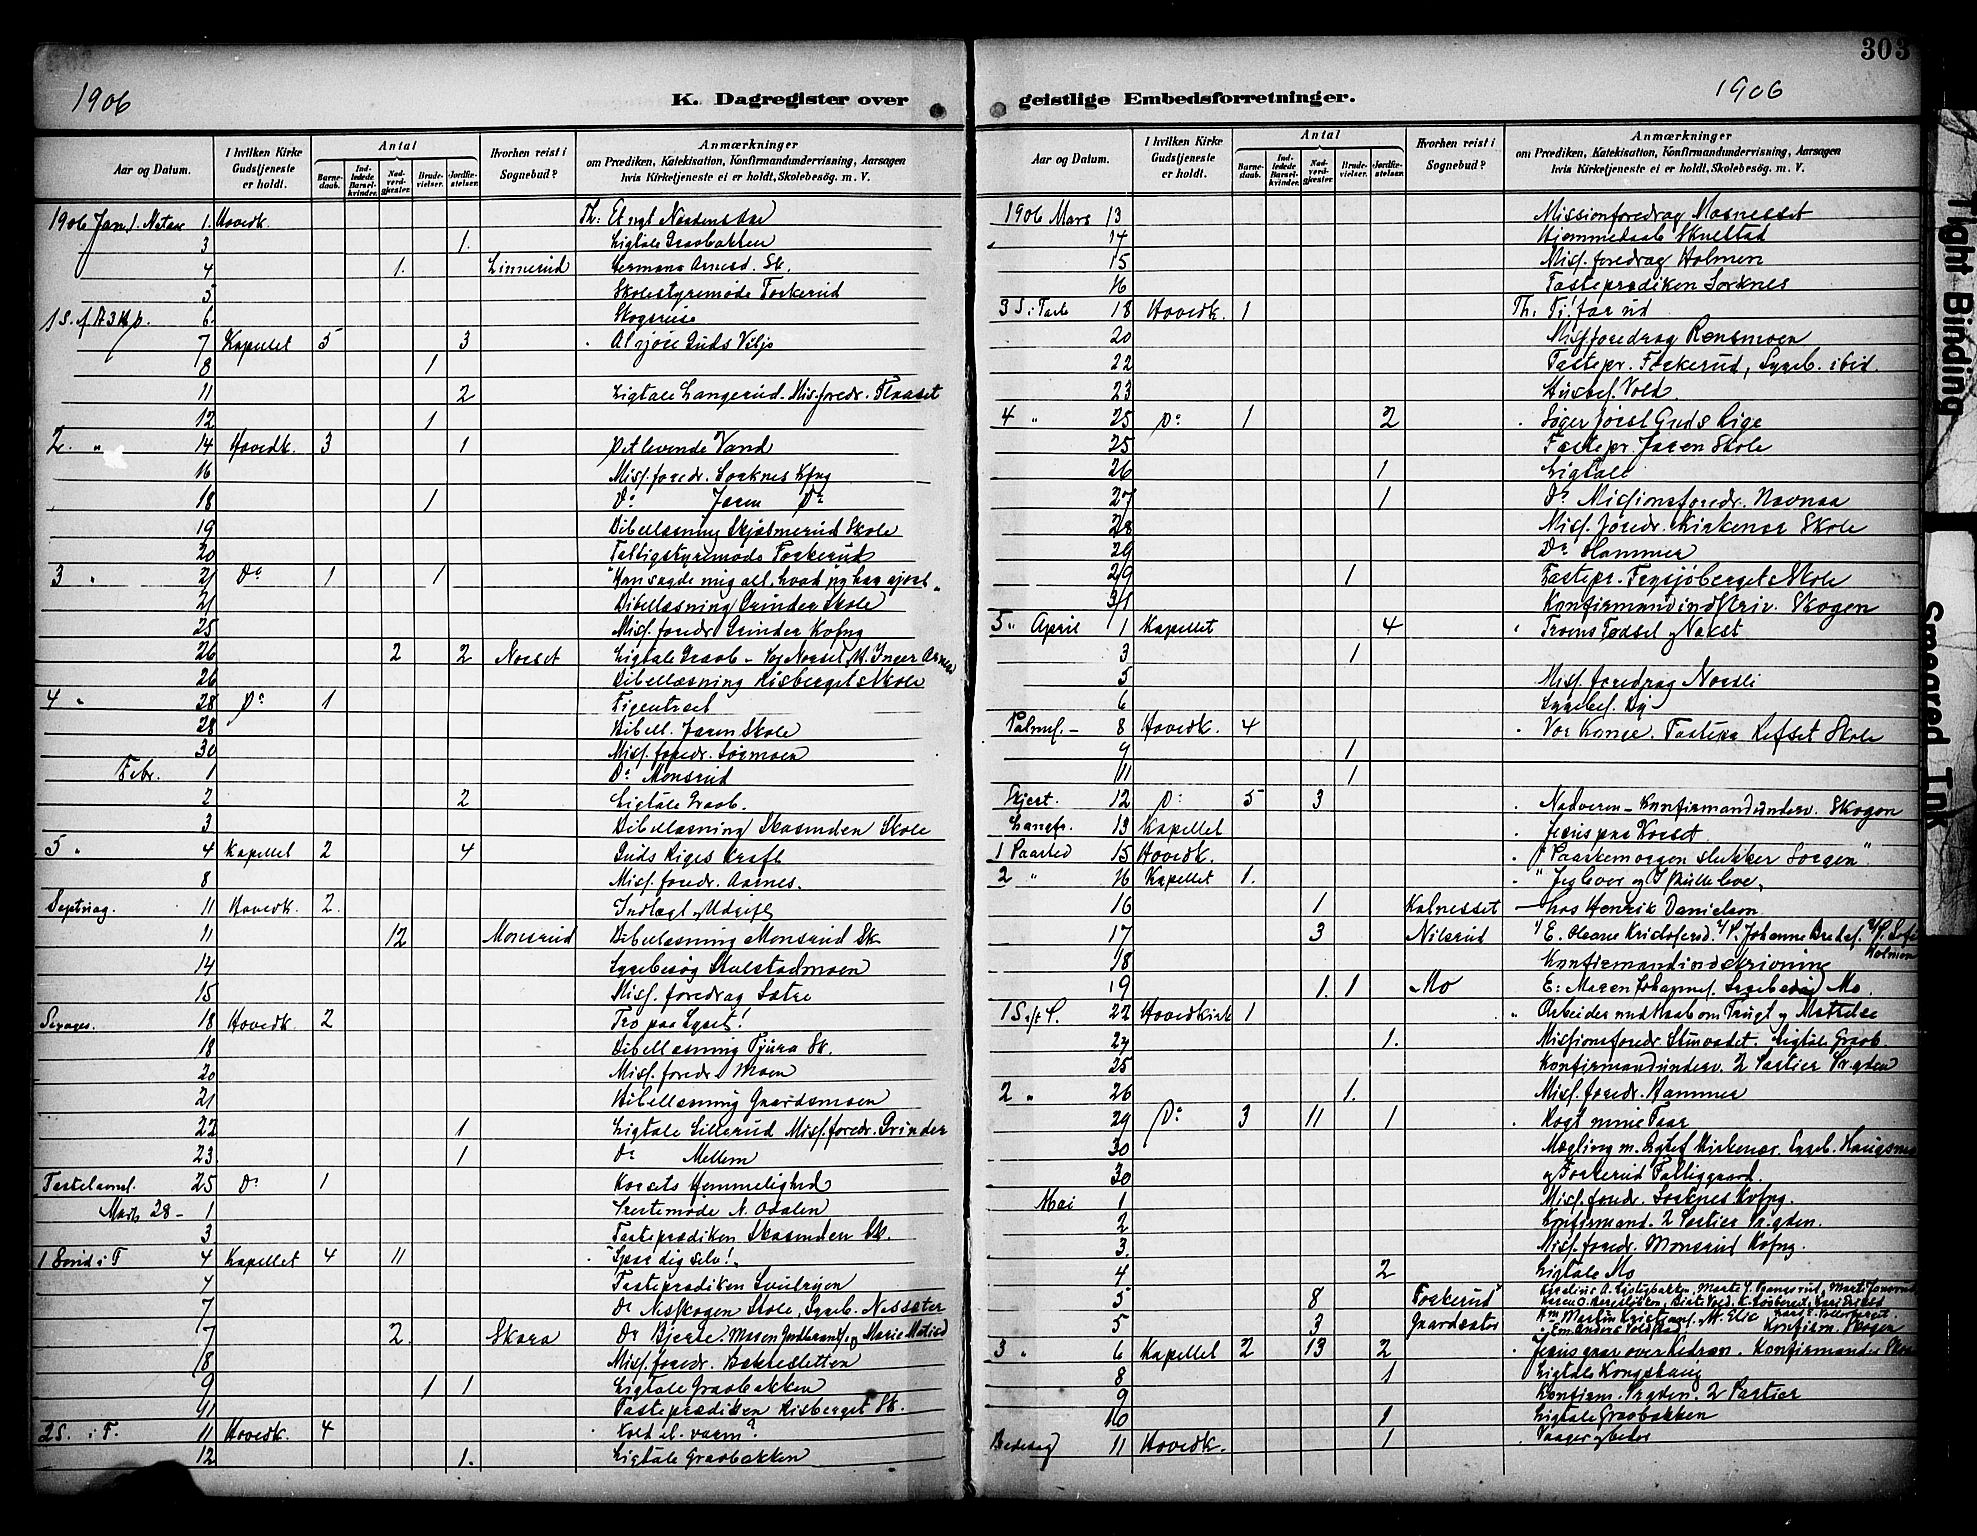 303
1906
1906
K. Dagregister over geistlige Embedsforretninger.
Aar og Datum. | I hvilken Kirke Gudstjeneste er holdt. | Antal | Barne-daab. | Ind-ledede Barsel-kvinder. | Nad-verd-gjæster. | Brude-vielser. | Jordfæ-stelser. | Hvorhen reist i Sognebud? | Anmærkninger om Prædiken, Katekisation, Konfirmandundervisning, Aarsagen hvis Kirketjeneste ei er holdt, Skolebesøg. m. V.
1906 Jan. 1. 1. Hovedk. Th: Et nyt Naadens Aar
3 1. Ligtale Graabakken
4 1. Linnerud Sk.
5 Skolestyremøde Forkerud
6. Skogreise
7 Kapellet 5 3 At gjøre Guds Vilje
8 1
11 2 Ligtale Langerud. Mis. foredr. Flaaset
12 1
2. " 14 Hovedk. 3 1 Det levende Vand
16 Miss. foredr. Sorknes Kfng
18 1 Do Jaren Do
19 Bibellæsning Skjølmerud Skole
20 Fattigstyremøde Forkerud
3 " 21 Do 1 1 "Han sagde mig alt, hvad jeg har gjort"
21 Bibellæsning Grinder Skole
25 Miss. foredr. Grinder Kvfng
26 2 2 Norset Ligtale Graab. Inger
26 Bibellæsning Risberget Skole
4 " 28 Do 1 Figentræet
28 Bibell. Jaren Skole
30 Miss. foredr. Sørmoen
Febr. 1 Do Monsrud
2 2 Ligtale Graab.
3 Bibellæsning Skasenden Skole
5 " 4 Kapellet 2 4 Guds Riges Kraft
8 Miss. foredr. Aarnes.
Septuag. 11 Hovedk. 2. Indtægt og Udgift
11 12 Monsrud Bibellæsning Monsrud Sk
14 Sygebesøg
15 Miss. foredrag Sætre
Sexages. 18 Hovedk. 2 Tro paa Lyset!
18 Bibellæsning Tjura Sk.
20 Miss. foredr. Moen
21 Bibellæsning Gaardsmoen
22 1 Ligtale Lillerud Miss. foredr. Grinder
23. 1 Do Mellem
Fastelavns. 25 Do 1 Korsets Hemmelighed
Marts 28 - 1 N. Odalen
3 Fasteprædiken Skasenden Sk.
1 Sønd i F 4 Kapellet 4 11 "Spar dig selv!"
4 Fasteprædiken Svulrijen
7 Do Nesskogen Skole, Sygeb. Nessæter
7 2. Skara Do Bjerke. Maren og Marie
8 Miss. foredr. Bakkesletten
9 1 1 Ligtale Graabakken
11 Fasteprædiken Risberget Sk.
2 S. i F. 11 Hovedk. 4 Kold el. varm?
12 1. Ligtale Graabakken
Aar og Datum. | I hvilken Kirke Gudstjeneste er holdt. | Antal | Barne-daab. | Ind-ledede Barsel-kvinder. | Nad-verd-gjæster. | Brude-vielser. | Jordfæ-stelser. | Hvorhen reist i Sognebud? | Anmærkninger om Prædiken, Katekisation, Konfirmandundervisning, Aarsagen hvis Kirketjeneste ei er holdt, Skolebesøg. m. V.
1906 Mars 13 Missionforedrag Mosnesset
14 Hjemmedaab Skulstad
15 Miss. foredrag Holmen
16 Fasteprædiken Sorknes
3 S i Faste 18 Hovedk. 1 Th. Ti
20 Missforedrag Rensmoen
22 Fastepr. Forkerud, Sygeb. ibid.
23 Vold
4 " 25 Do 1 2 Søger først Guds Rige
25 Fastepr. Jaren Skole
26 1 Ligtale
27 1 Do Missionsforedr. Navnaa
28 Miss. foredr. Kirkenær Skole
29 Do Hammer
29 1 Fastepr. Frysjøberget Skole
31 Konfirmandindskriv. Skogen
5 " April 1 Kapellet 4 Troens Fødsel og Vekst
3 1
5 Miss. foredrag Nordli
6 Sygebes. By
Palmes. - 8 Hovedk. 4 Vor Konge. Fastepr. Refset Skole
9 1
11 1
Skjert. 12 Do 5 3 Nadveren - Konfirmandunderv. Skogen
Langfr. 13 Kapellet Jesus paa Korset
1 Paaskd 15 Hovedk. "Paaskemorgen slukker Sorgen"
2 " 16 Kapellet 1. "Jeg lever og I skulle leve"
16 1 Kalnesset hos Henrik Danielsen
17 3 Nilsrud E. Oleane Johanne Holmen
18 Konfirmandindskrivning
19 1. 1 Mo E: Maren Johannes. Sygebesøg Mo.
1 S. eft. P. 22 Hovedkirk 1 Arbeider med Haab om Frugt
24 1. Missionsforedr. Ligtale Graab
25 Konfirmandunderv. 2 Partier Prgden
2 " 26 1. Miss. foredr. Hammer
29 Do 3 11 1 Røgt mine Faar
30 Mægling m. Kirkenær. Sygeb.
30 og Forkerud Fattiggaard.
Mai 1 Miss. foredr. Sorknes Kvfng.
2 Konfirmand. 2 Partier Prgden.
3. Miss. foredr. Monsrud Kvfng.
4 2 Ligtale Mo
5 8 Forkerud
5 3 Gaardsæter Konfirm. Skogen
3 " 6 Kapellet 2 13 2 Jesus gaar over Kedron. Konfirmander
8 1 Ligtale Kongshaug
9 Konfirm. Prgden. 2 Partier
10 1 Ligtale Graabakken
Bededag 11 Hovedk. 1 Vaager og beder
Tight Binding
Smeared Ink